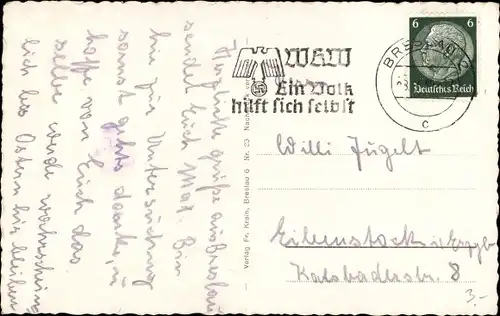 Herzliche Grüße aus Breslau
sendet Euch Max. Bin
hier zur Untersuchung
sonst gehts danke, u.
hoffe von Euch das
selbe. Werde wahrschein
lich bis Ostern hier bleiben
Verlag Fr. Krain, Breslau 6 Nr. 23
WHW
Ein Volk
hilft sich selbst
BRESLAU
c
6 6
Deutsches Reich
Willi Jugelt
Eibenstock i/Erzgb
Karlsbaderstr. 8
3.-